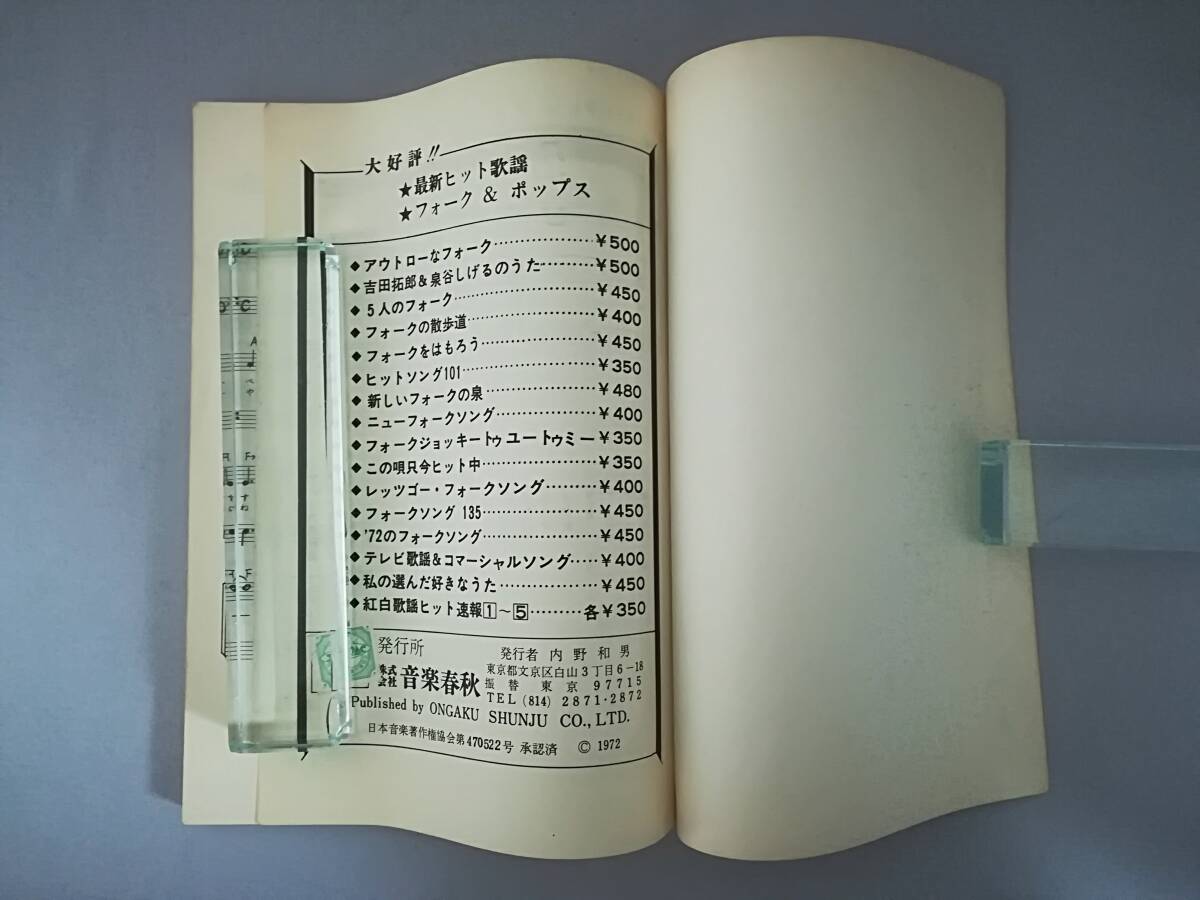 大好評!!
★最新ヒット歌謡
★フォーク & ポップス
◆アウトローなフォーク…………………¥500
◆吉田拓郎&泉谷しげるのうた…………¥500
◆5人のフォーク…………………………¥450
◆フォークの散歩道………………………¥400
◆フォークをはもろう……………………¥450
◆ヒットソング101………………………¥350
◆新しいフォークの泉……………………¥480
◆ニューフォークソング…………………¥400
◆フォークジョッキートゥユートゥミー¥350
◆この唄只今ヒット中……………………¥350
◆レッツゴー・フォークソング…………¥400
◆フォークソング 135……………………¥450
◆'72のフォークソング…………………¥450
◆テレビ歌謡&コマーシャルソング……¥400
◆私の選んだ好きなうた…………………¥450
◆紅白歌謡ヒット速報1〜5…………各¥350
発行所
株式会社 音楽春秋
発行者 内野和男
東京都文京区白山3丁目6-18
振替 東京 97715
TEL (814) 2871・2872
Published by ONGAKU SHUNJU CO., LTD.
日本音楽著作権協会第470522号 承認済 © 1972